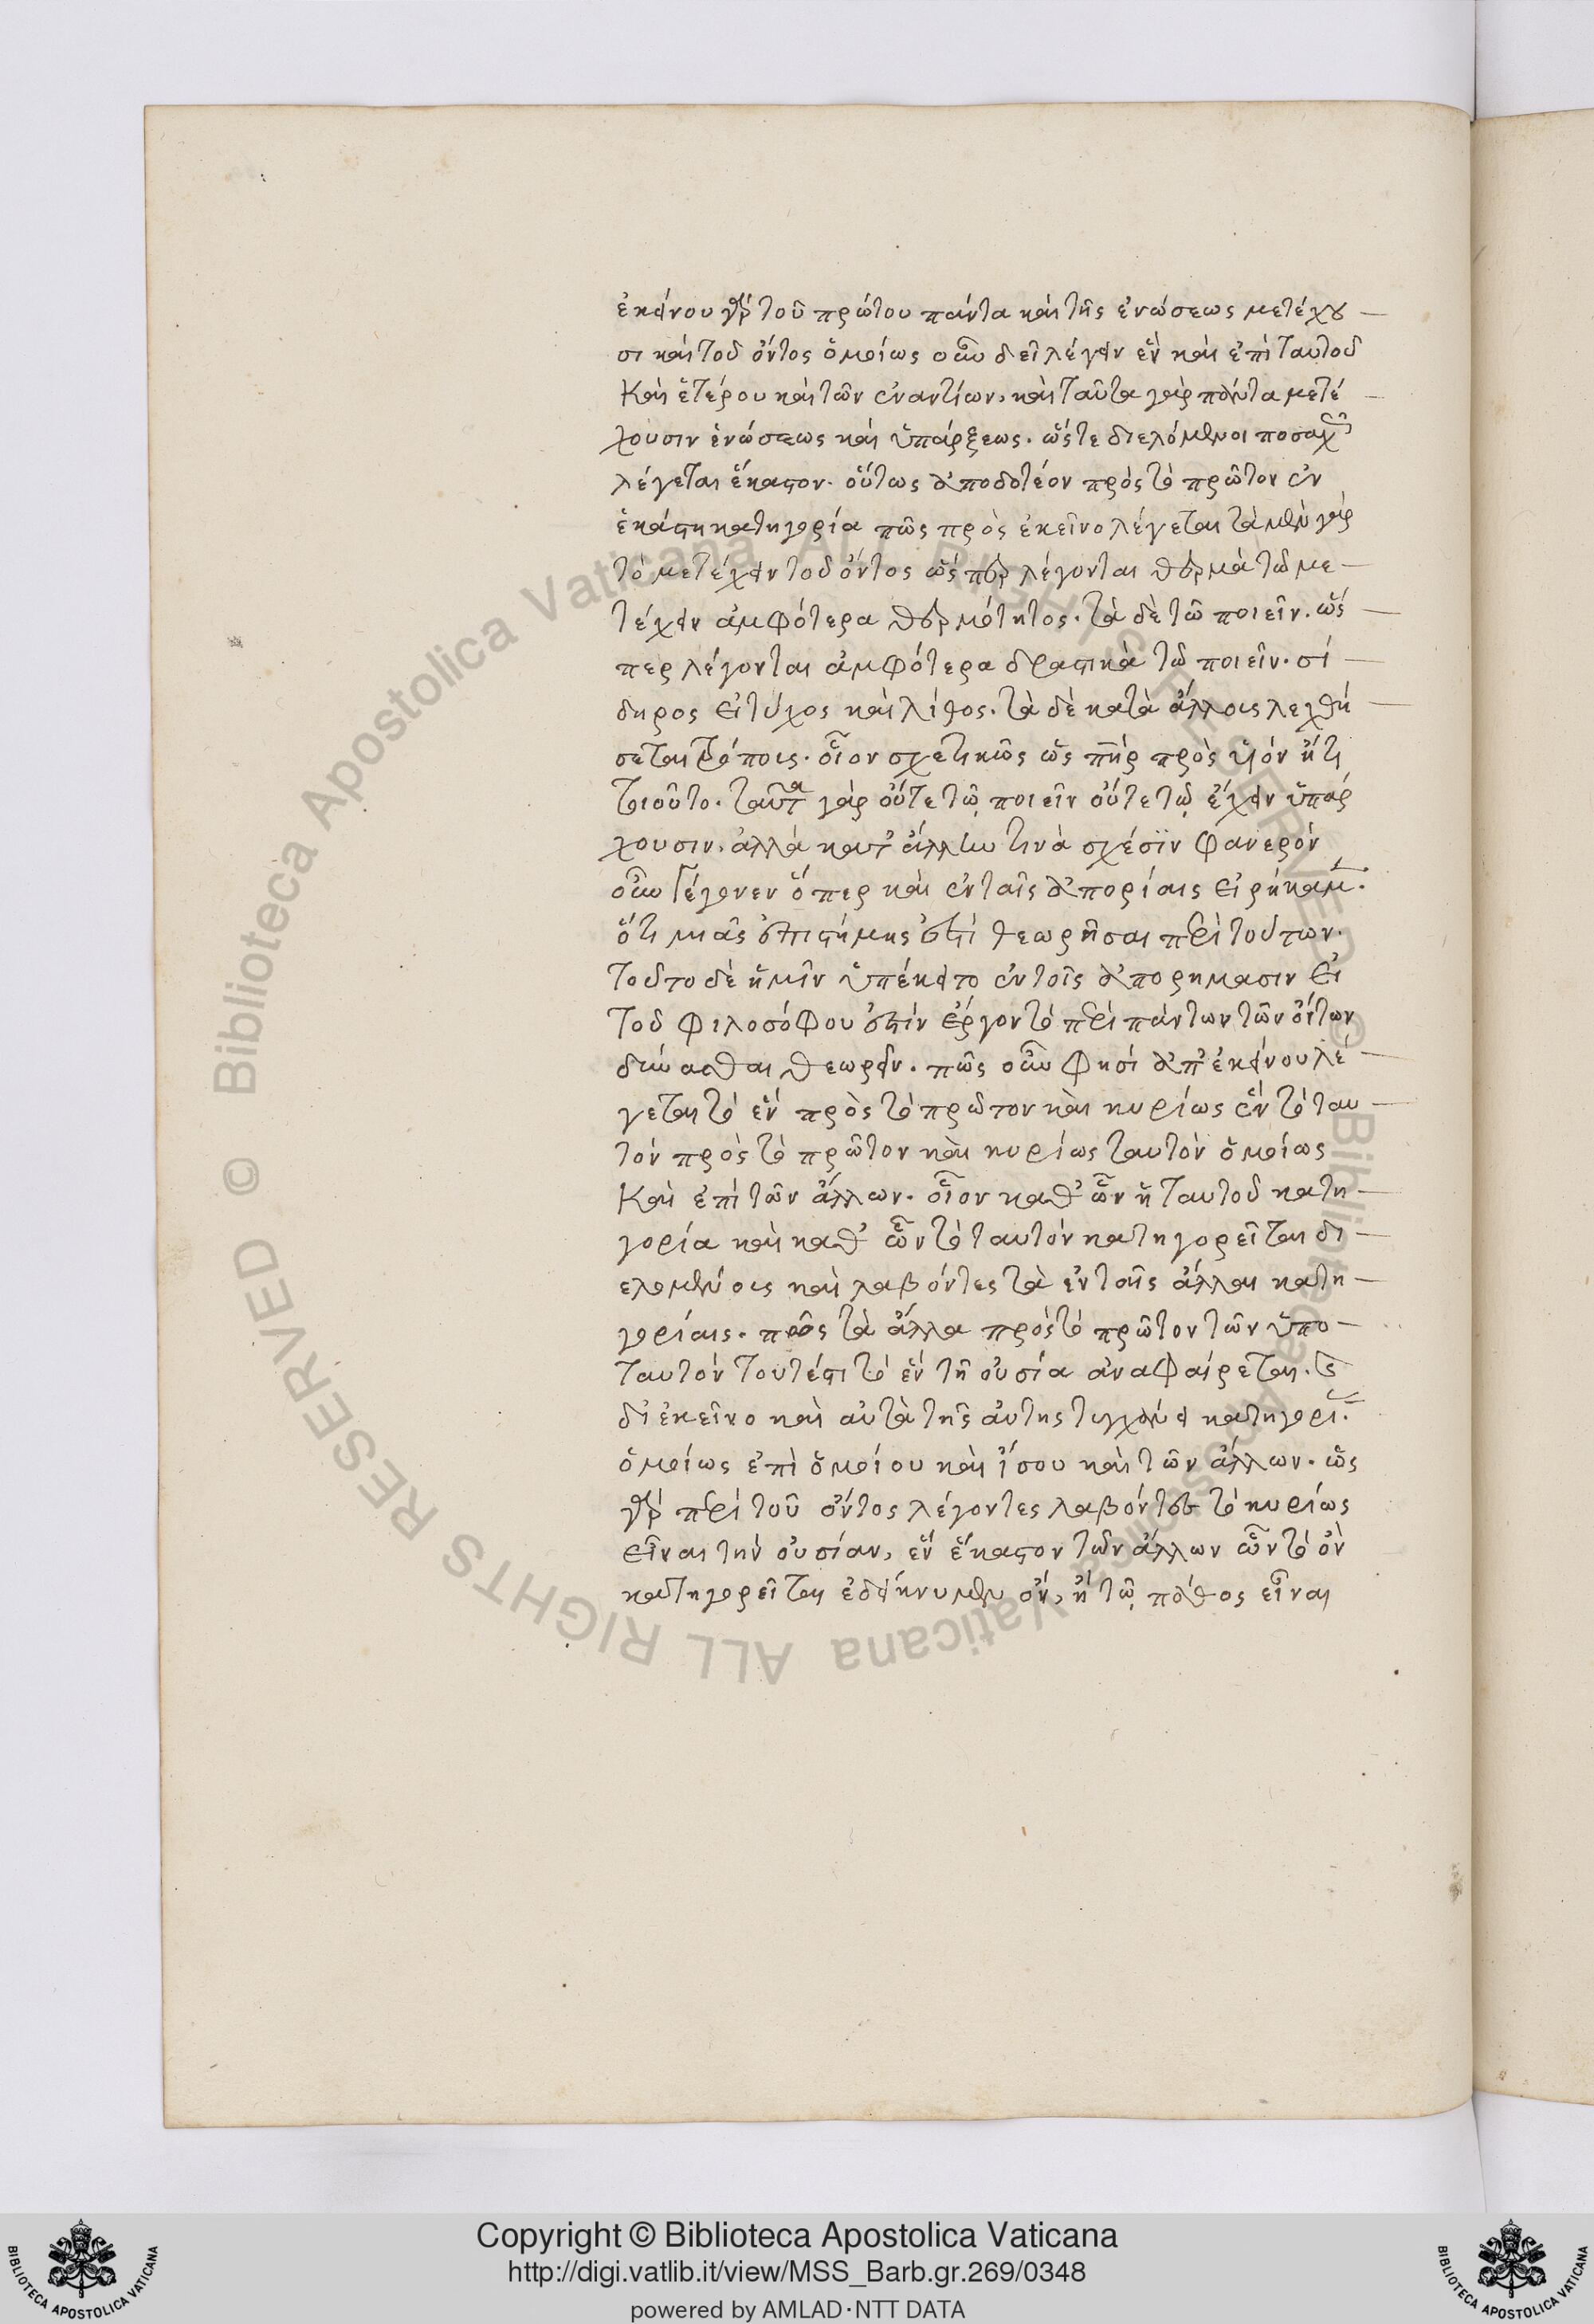 ἐκείνου γὰρ τοῦ πρώτου πάντα καὶ τῆς ἑνώσεως μετέχου
σι καὶ τοῦ ὄντος ὁμοίως οὖν δεῖ λέγειν ἓν καὶ ἐπὶ ταυτοῦ
καὶ ἑτέρου καὶ τῶν ἐναντίων, καὶ ταῦτα γὰρ πάντα μετέ
χουσιν ἑνώσεως καὶ ὑπάρξεως. ὥστε διελόμενοι ποσαχῶς
λέγεται ἕκαστον. οὕτως ἀποδοτέον πρὸς τὸ πρῶτον ἐν
ἑκάστη κατηγορία πῶς πρὸς ἐκεῖνο λέγεται τὰ μὲν γὰρ
τὸ μετέχειν τοῦ ὄντος ὥσπερ λέγονται θερμὰ τῶ με
τέχειν ἀμφότερα θερμότητος. τὰ δὲ τῶ ποιεῖν. ὥσ
περ λέγονται ἀμφότερα δραστικὰ τῶ ποιεῖν. σί
δηρος εἰ τύχος καὶ λίθος. τὰ δὲ κατὰ ἄλλοις λεχθή
σεται τρόποις. οἷον σχετικῶς ὡς πὴρ πρὸς υἱόν ἤ τι
τοιοῦτο. ταῦτα γὰρ οὔτε τῷ ποιεῖν οὔτε τῷ ἔχειν ὑπάρ
χουσιν. ἀλλὰ κατ' ἄλλην τινὰ σχέσϊν φανερὸν
οὖν γέγονεν ὅπερ καὶ ἐν ταῖς ἀπορίαις εἰρήκαμεν.
ὅτι μιᾶς ἐπιστήμης ἐστὶ θεωρῆσαι περὶ τούτων.
τοῦτο δὲ ἡμῖν ὑπέκειτο ἐν τοῖς ἀπορημασιν εἰ
τοῦ φιλοσόφου ἐστὶν ἔργον τὸ περὶ πάντων τῶν ὄντων
δύνασθαι θεωρεῖν. πῶς οὖν φησὶ ἀπ' ἐκείνου λέ
γεται τὸ ἓν πρὸς τὸ πρῶτον καὶ κυρίως ἓν τὸ ταυ
τὸν πρὸς τὸ πρῶτον καὶ κυρίως ταυτὸν ὁμοίως
καὶ ἐπὶ τῶν ἄλλων. οἷον καθ' ὧν ἡ ταυτοῦ κατη
γορία καὶ καθ' ὧν τὸ ταυτὸν κατηγορεῖται δι
ελομένοις καὶ λαβόντες τὰ ἐν ταῖς ἄλλαι κατη
γορίαις. πῶς τὰ ἄλλα πρὸς τὸ πρῶτον τῶν ὑπο
ταυτὸν τουτέστι τὸ ἓν τῆ οὐσία ἀναφαίρεται.
δι' ἐκεῖνο καὶ αὐτὰ τῆς αὐτης τυγχάνει κατηγορί.
ὁμοίως ἐπὶ ὁμοίου καὶ ἴσου καὶ τῶν ἄλλων. ὡς
γὰρ περὶ τοῦ ὄντος λέγοντες λαβόντες τὸ κυρίως
εἶναι τὴν οὐσίαν, ἓν ἕκαστον τῶν ἄλλων ὧν τὸ ὂν
κατηγορεῖται ἐδείκνυμεν ὄν, ἢ τῷ πάθος εἶναι
Copyright © Biblioteca Apostolica Vaticana
http://digi.vatlib.it/view/MSS_Barb.gr.269/0348
powered by AMLAD·NTT DATA
BIBLIOTECA APOSTOLICA VATICANA
BIBLIOTECA APOSTOLICA VATICANA
© Biblioteca Apostolica Vaticana ALL RIGHTS RESERVED © Biblioteca Apostolica Vaticana ALL RIGHTS RESERVED